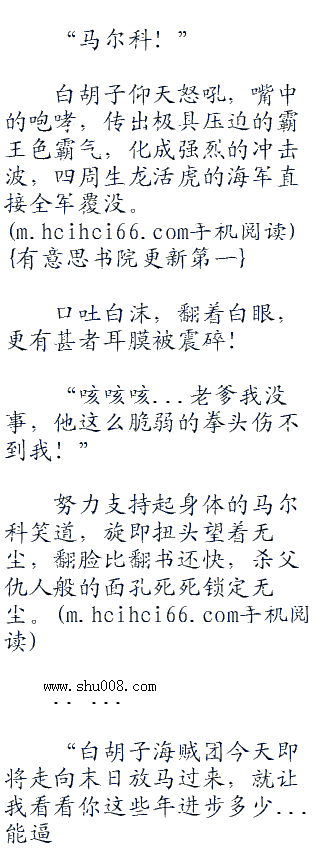 “马尔科！”
白胡子仰天怒吼，嘴中
的咆哮，传出极具压迫的霸
王色霸气，化成强烈的冲击
波，四周生龙活虎的海军直
接全军覆没。
(m.hcihci66.com手机阅读)
{有意思书院更新第一}
口吐白沫，翻着白眼，
更有甚者耳膜被震碎！
“咳咳咳...老爹我没
事，他这么脆弱的拳头伤不
到我！”
努力支持起身体的马尔
科笑道，旋即扭头望着无
尘，翻脸比翻书还快，杀父
仇人般的面孔死死锁定无
尘。(m.hcihci66.com手机阅
读)
www.shu008.com
.. ...
“白胡子海贼团今天即
将走向末日放马过来，就让
我看看你这些年进步多少...
能逼